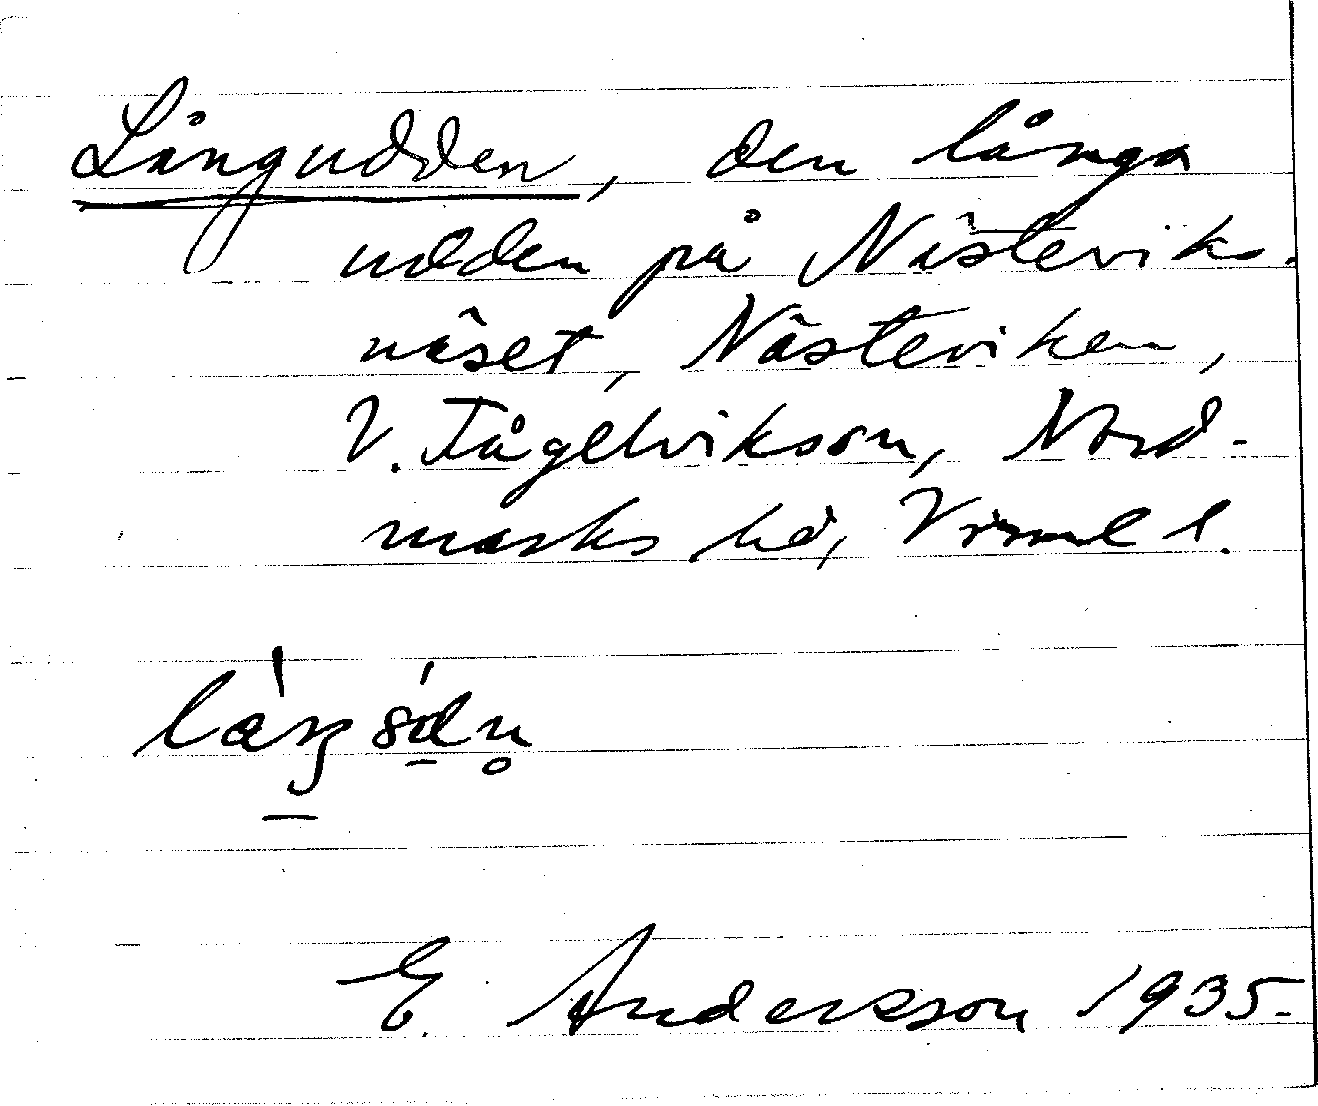 Långudden, den långa
udden på Nästeviks-
näset, Nästeviken,
V. Fågelvikson, Nord-
marks hd, Värml l.
E. Andersson 1935.